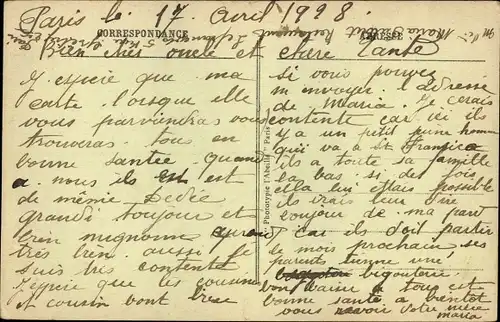 Paris le 17 Avril 1928.
CORRESPONDANCE
ADRESSE
Bien chers oncle et chère Tante
J'espère que ma
carte lorsque elle
vous parviendras vous
trouveras tous en
bonne santée quand
a nous ils en est
de même Dédée
grandi toujour et
bien mignonne
très bien. aussi je
suis très contente
J'espère que les cousines
et cousin vont bien
si vous pouvez
m envoyer l'adresse
de Maria. Je serais
contente car ici ils
y a un petit jeune homme
qui va a St. Francisco
ils a toute sa famille
la bas si des fois
ella lui était possible
ils irais leur dire
bonjour de ma part
car ils doit partir
le mois prochain ses
parents tienne une
bigouterie.
bonne santé a bientot
vous revoir votre nièce
Maria
Phototypie l'Abeille, Paris